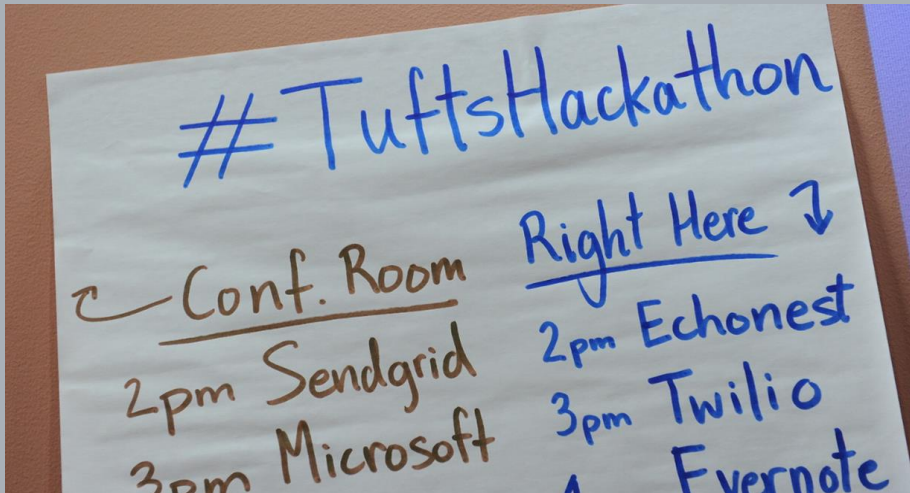 #TuftsHackathon
Conf. Room
2pm Sendgrid
3pm Microsoft
Right Here
2pm Echonest
3pm Twilio
Evernote